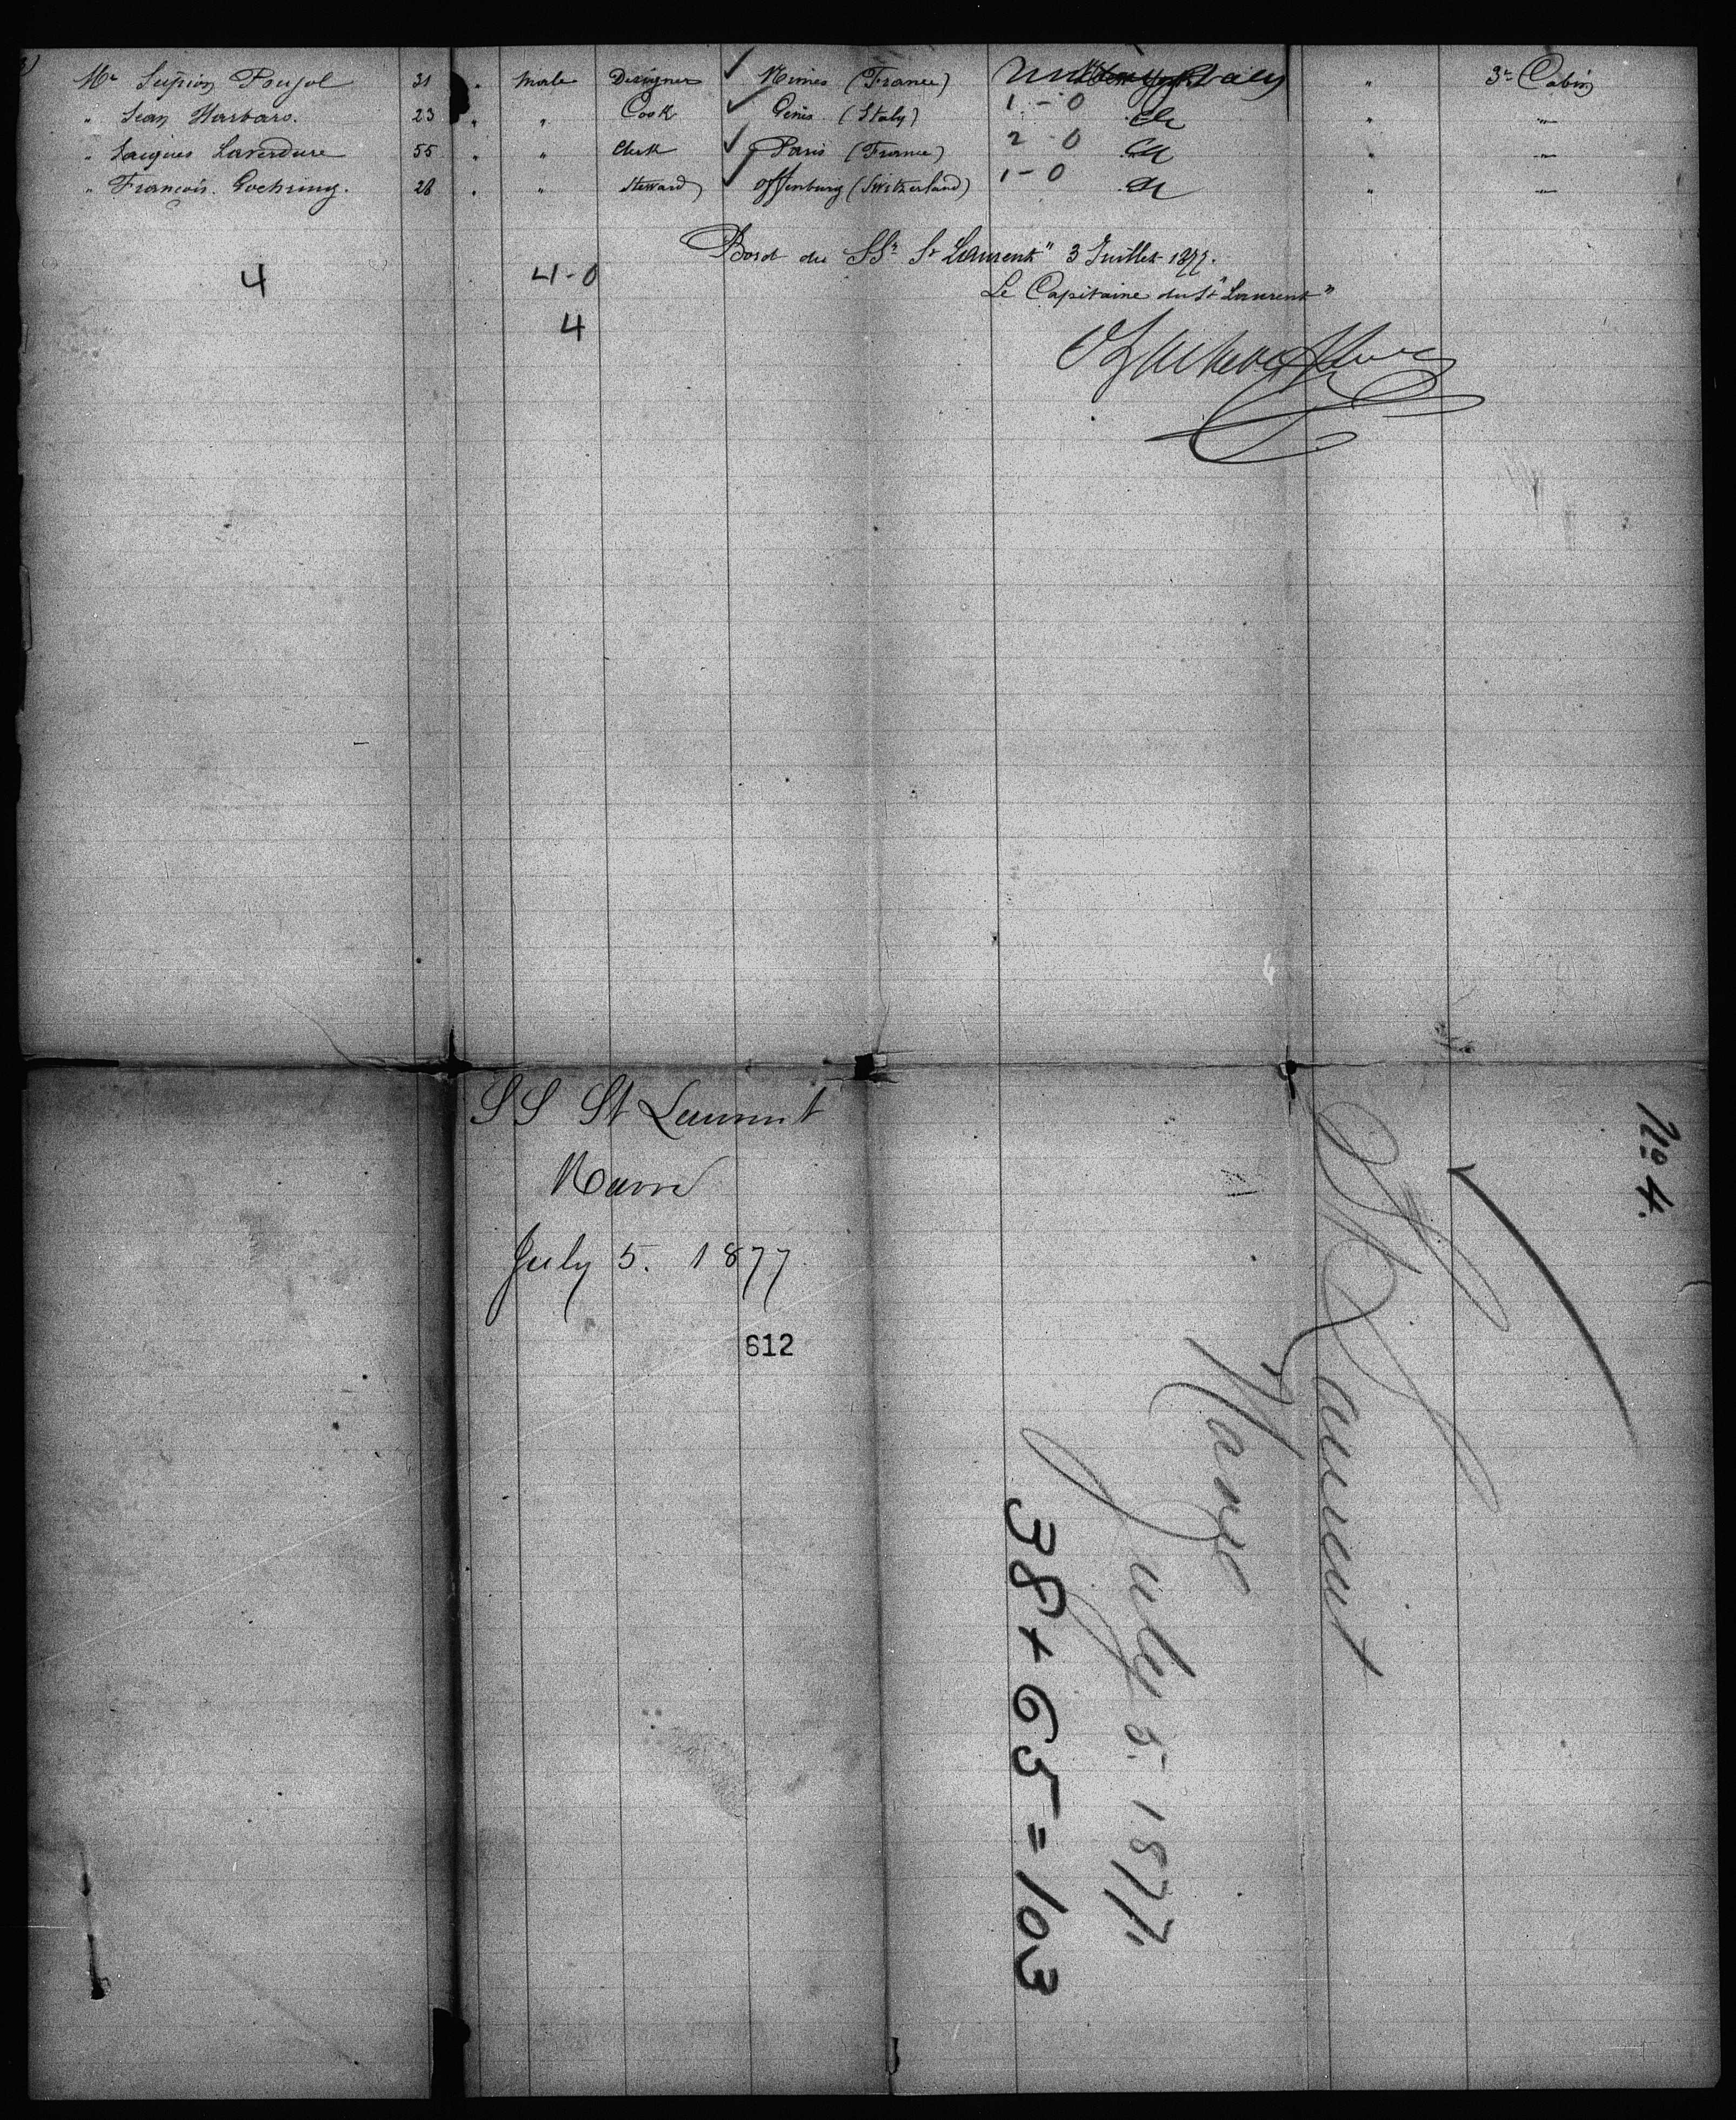 Mr Pougol 31 " Male Designer ✓ Nimes (France) " 3e Cabin
" Jean Barbaro. 23 " " Cook ✓ Gênes (Italy) 1-0 " "
" Jacques Laverdure 55 " " Clerk ✓ Paris (France) 2-0 " "
" François Goehring. 28 " " Steward ✓ Offenburg (Switzerland) 1-0 " "
Bord du SSr St Laurent" 3 Juillet 1877.
4 4-0
Le Capitaine du St "Laurent"
4
SS St Laurent
Havre
July 5. 1877
612
No 4.
St Laurent
Havre
July 5. 1877.
38+65=103